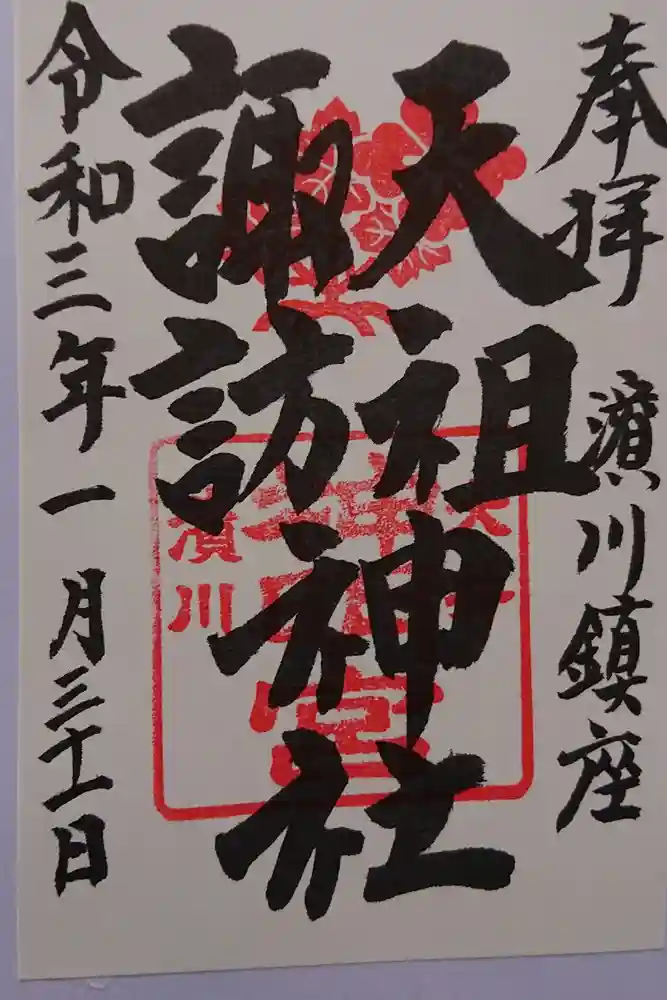 奉拝 濱川鎮座
天祖
諏訪
神社
令和三年一月三十一日
宮
濱川